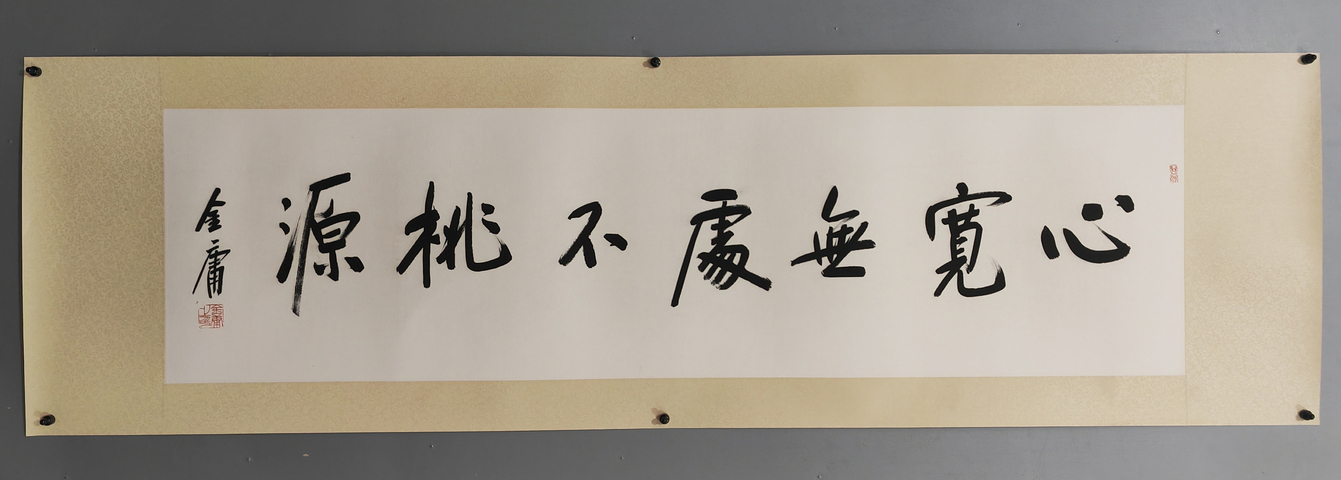 心寬無處不桃源
金庸